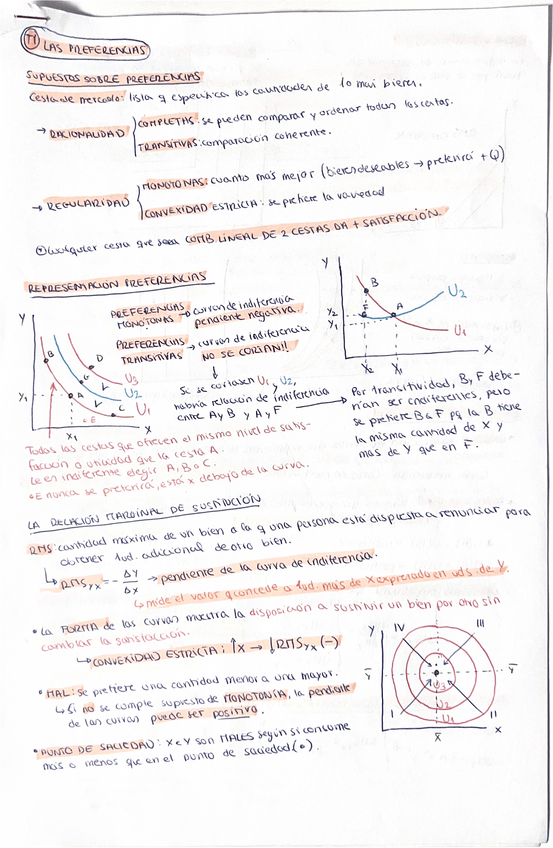 T1 LAS PREFERENCIAS
SUPUESTOS SOBRE PREFERENCIAS
Cesta de mercado: lista q especifica las cantidades de 1 o mas bienes.
→ RACIONALIDAD
COMPLETAS: se pueden comparar y ordenar todas las cestas.
TRANSITIVAS: comparación coherente.
→ REGULARIDAD
MONÓTONAS: cuanto más mejor (bienes deseables → preferirá +Q)
CONVEXIDAD ESTRICTA: se prefiere la variedad
Cualquier cesta que sea COMB. LINEAL DE 2 CESTAS DA + SATISFACCIÓN.
REPRESENTACIÓN PREFERENCIAS
PREFERENCIAS MONÓTONAS → curvas de indiferencia pendiente negativa.
PREFERENCIAS TRANSITIVAS → curvas de indiferencia NO SE CORTAN!!
Si se cortasen U1 y U2,
habría relación de indiferencia
entre A y B y A y F
Y
B
D
A
C
E
U3
U2
U1
X1
X
Y
B
F
A
U2
U1
Y2
Y1
X2
X1
X
Por transitividad, B y F debe-
rían ser indiferentes, pero
se prefiere B a F pq la B tiene
la misma cantidad de X y
mas de Y que en F.
Todas las cestas que ofrecen el mismo nivel de satis-
facción o utilidad que la cesta A.
Le es indiferente elegir A, B o C.
*E nunca se preferirá, está x debajo de la curva.
LA RELACIÓN MARGINAL DE SUSTITUCIÓN
RMS: cantidad máxima de un bien a la q una persona está dispuesta a renunciar para
obtener 1ud. adicional de otro bien.
RMSyx = - ΔY/ΔX → pendiente de la curva de indiferencia.
↳ mide el valor q concede a 1ud. más de X expresada en uds. de Y.
• La FORMA de las curvas muestra la disposición a sustituir un bien por otro sin
cambiar la satisfacción.
↳ CONVEXIDAD ESTRICTA: ↑X → ↓RMSyx (-)
• MAL: se prefiere una cantidad menor a una mayor.
↳ Si no se cumple supuesto de MONOTONÍA, la pendiente
de las curvas puede ser positiva.
• PUNTO DE SACIEDAD: X e Y son MALES según si consume
más o menos que en el punto de saciedad (•).
Y
IV
III
Y
Y
U3
U2
U1
I
II
X
X